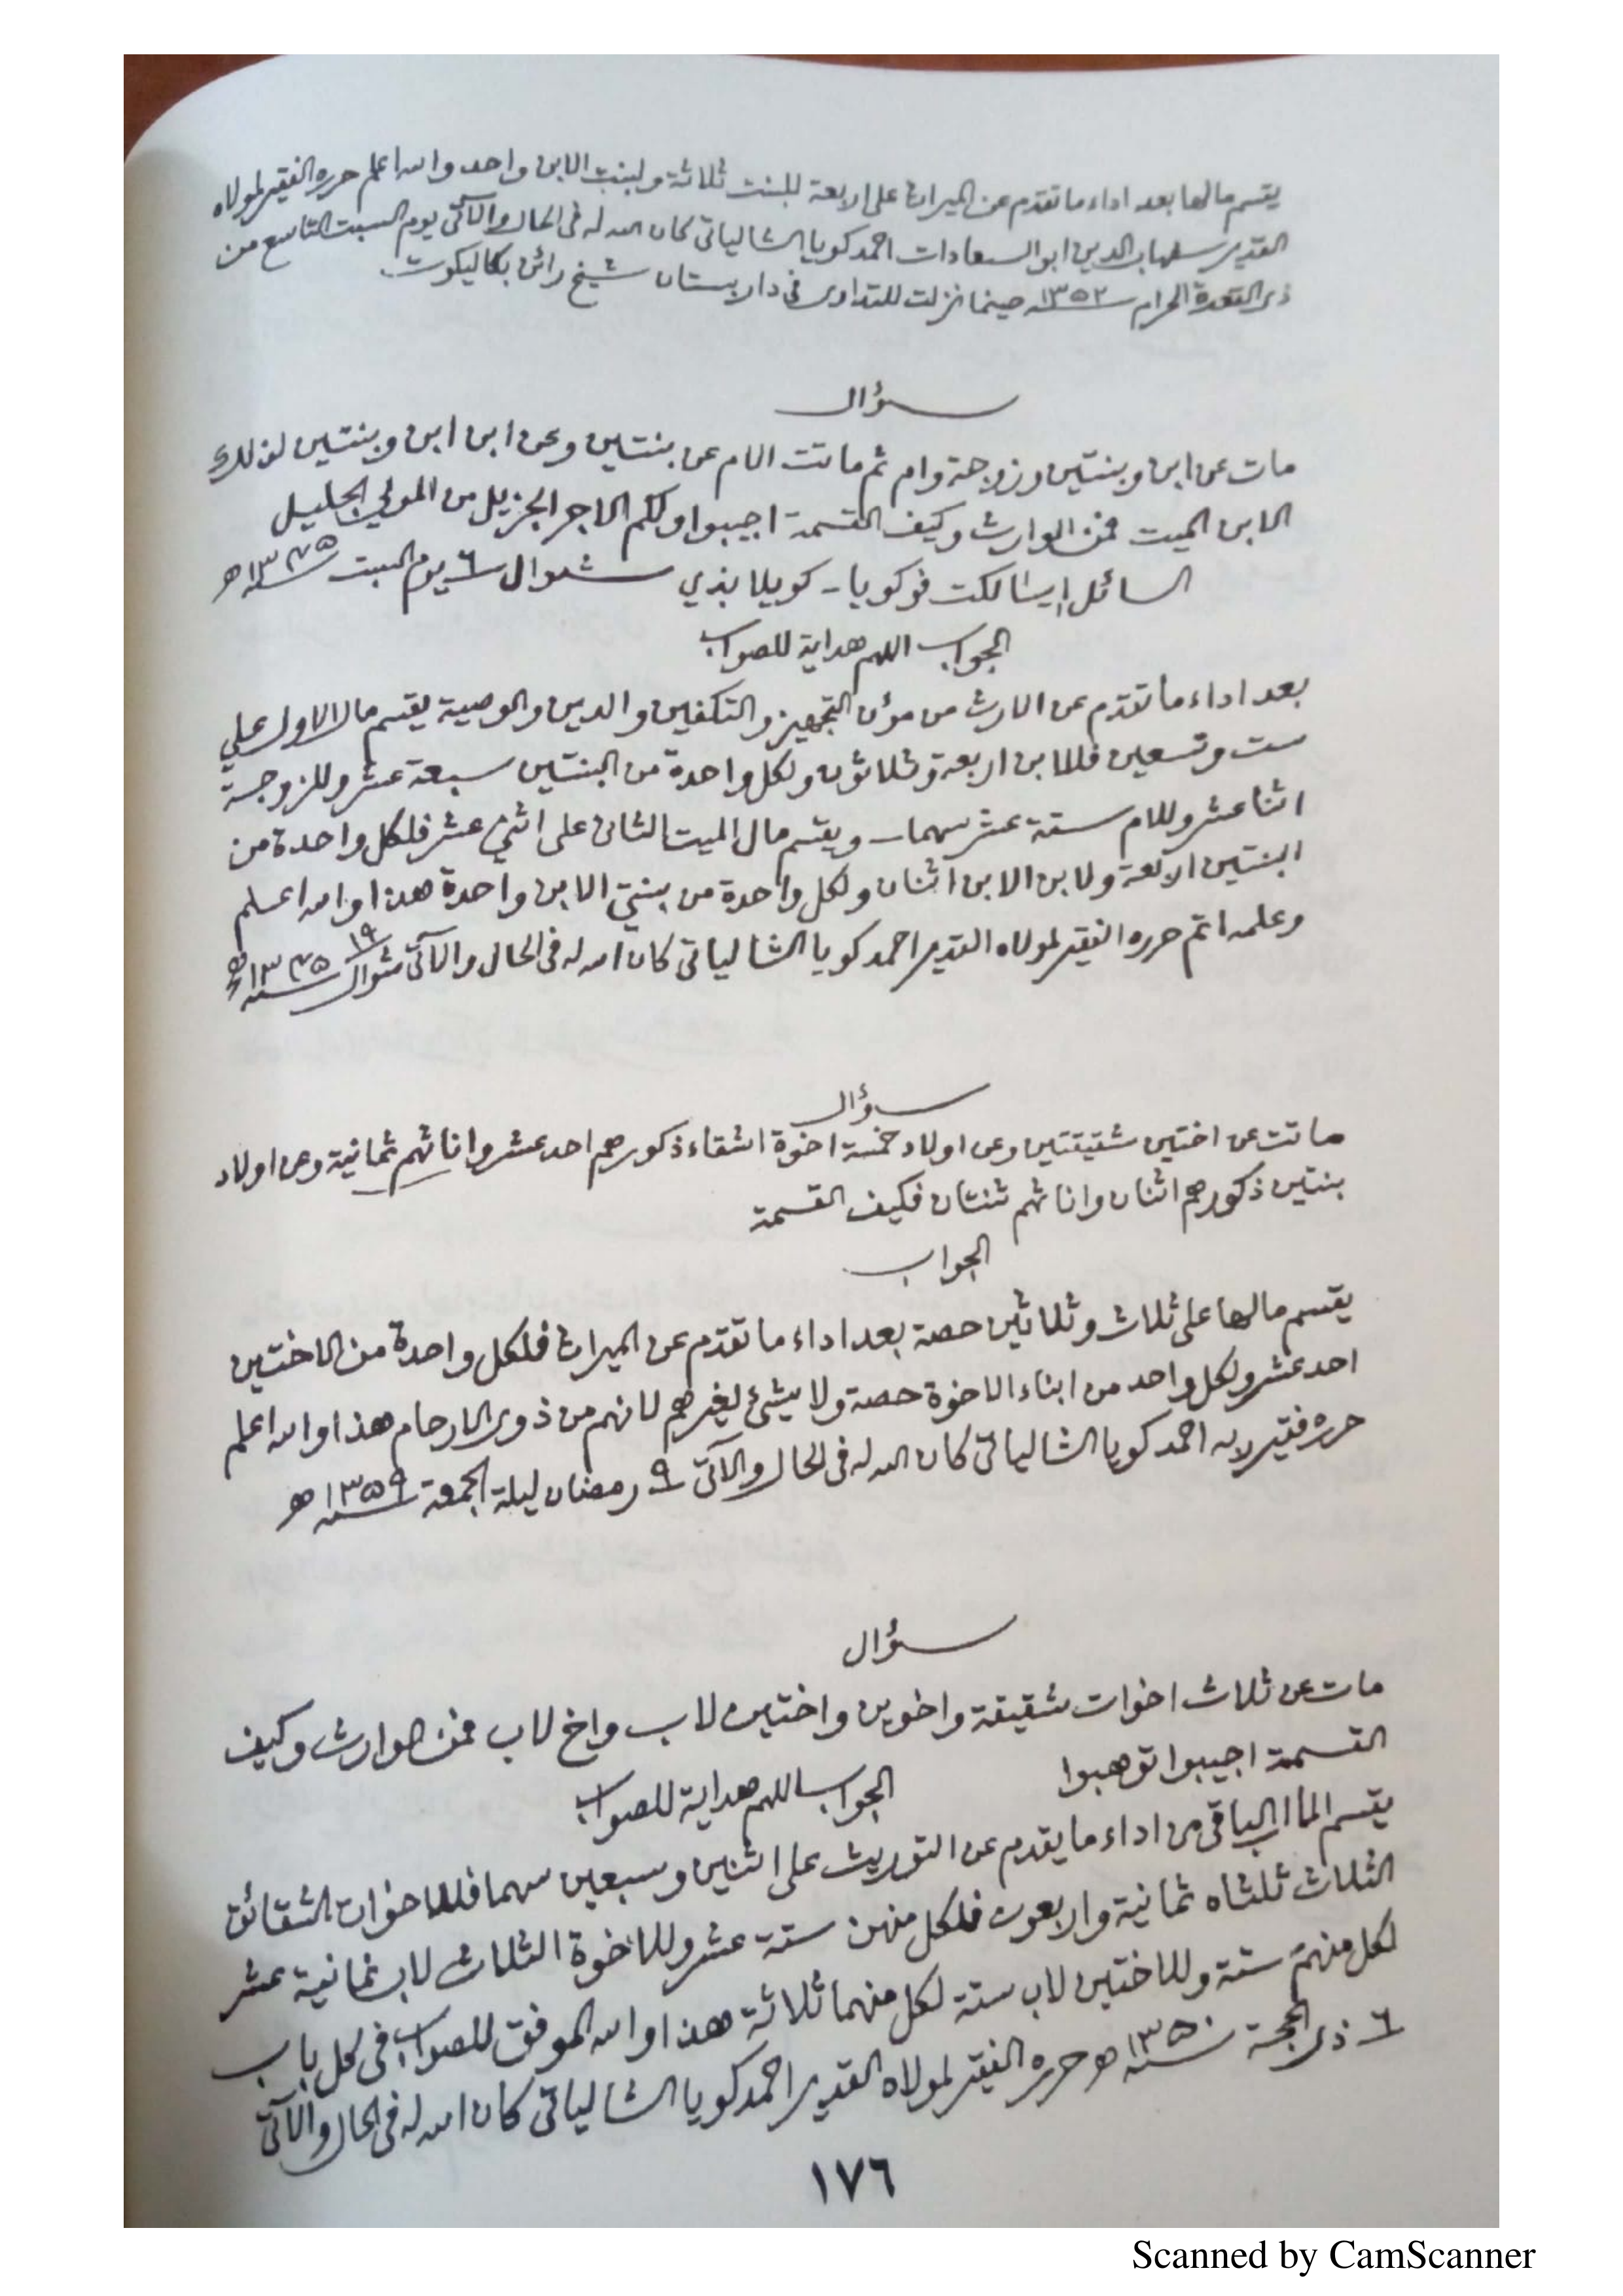 يقسم مالها بعد اداء ما تقدم عن الميراث على اربعة للبنت ثلاثة ولبنت الابن واحد والله اعلم حرره الفقير لمولاه
القدير شهاب الدين ابو السعادات احمد كويا الشالياتي كان الله له في الحال والآتي يوم السبت التاسع من
ذى القعدة الحرام سنة ١٣٥٢ حينما نزلت للتداوى فى دار بستان شيخ رائن بكاليكوت
سؤال
مات عن ابن وبنتين وزوجة وام ثم ماتت الام عن بنتين وعن ابن ابن وبنتين لذلك
الابن الميت فمن الوارث وكيف القسمة اجيبوا ولكم الاجر الجزيل من المولى الجليل
السائل ايشالكت فوكويا - كويلابذي شوال ٦ يوم السبت سنة ١٣٧٥ هـ
الجواب اللهم هداية للصواب
بعد اداء ما تقدم عن الارث من مؤن التجهيز والتكفين والدين والوصية يقسم مال الاول على
ست وتسعين فللابن اربعة وثلاثون ولكل واحدة من البنتين سبعة عشر وللزوجة
اثنا عشر وللام ستة عشر سهما - ويقسم مال الميت الثانى على اثني عشر فلكل واحدة من
البنتين اربعة ولابن الابن اثنان ولكل واحدة من بنتي الابن واحدة هذا والله اعلم
وعلمه اتم حرره الفقير لمولاه القدير احمد كويا الشالياتى كان الله له فى الحال والآتى ١٩ شوال سنة ١٣٧٥ هـ
سؤال
ماتت عن اختين شقيقتين وعن اولاد خمسة اخوة اشقاء ذكورهم احد عشر واناثهم ثمانية وعن اولاد
بنتين ذكورهم اثنان واناثهم ثنتان فكيف القسمة
الجواب
يقسم مالها على ثلاث وثلاثين حصة بعد اداء ما تقدم عن الميراث فلكل واحدة من الاختين
احد عشر ولكل واحد من ابناء الاخوة حصة ولا يشئ لغيرهم لانهم من ذوى الارحام هذا والله اعلم
حرره فقير ربه احمد كويا الشالياتى كان الله له فى الحال والآتى ٩ رمضان ليلة الجمعة سنة ١٣٥٩ هـ
سؤال
مات عن ثلاث اخوات شقيقة واخوين واختين لاب واخ لاب فمن الوارث وكيف
القسمة اجيبوا توهبوا
الجواب اللهم هداية للصواب
يقسم المال الباقى من اداء ما يقدم عن التوريث على اثنين وسبعين سهما فللاخوات الشقائق
الثلاث ثلثاه ثمانية واربعون فلكل منهن ستة عشر وللاخوة الثلاث لاب ثمانية عشر
لكل منهم ستة وللاختين لاب ستة لكل منهما ثلاثة هذا والله الموفق للصواب فى كل باب
٦ ذى الحجة سنة ١٣٥٠ هـ حرره الفقير لمولاه القدير احمد كويا الشالياتى كان الله له فى الحال والآتى
١٧٦
Scanned by CamScanner